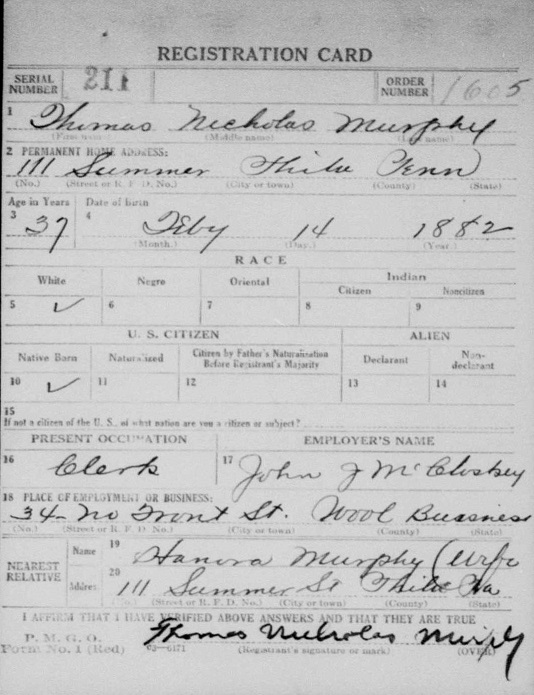 REGISTRATION CARD
SERIAL NUMBER 211 ORDER NUMBER 1605
1 Thomas Nicholas Murphy
(First name) (Middle name) (Last name)
2 PERMANENT HOME ADDRESS:
111 Summer Phila Penn
(No.) (Street or R. F. D. No.) (City or town) (County) (State)
Age in Years Date of birth
3 37 4 Feby 14 1882
(Month.) (Day.) (Year.)
RACE
White Negro Oriental Indian
Citizen Noncitizen
5 ✓ 6 7 8 9
U. S. CITIZEN ALIEN
Native Born Naturalized Citizen by Father's Naturalization Before Registrant's Majority Declarant Non-declarant
10 ✓ 11 12 13 14
15
If not a citizen of the U. S., of what nation are you a citizen or subject?
PRESENT OCCUPATION EMPLOYER'S NAME
16 Clerk 17 John J McCloskey
18 PLACE OF EMPLOYMENT OR BUSINESS:
34 No Front St. Wool Bussiness
(No.) (Street or R. F. D. No.) (City or town) (County) (State)
NEAREST RELATIVE
Name 19 Hanora Murphy (Wife
Address 20 111 Summer St Phila Pa
(No.) (Street or R. F. D. No.) (City or town) (County) (State)
I AFFIRM THAT I HAVE VERIFIED ABOVE ANSWERS AND THAT THEY ARE TRUE
P. M. G. O.
Form No. 1 (Red) 03—6171 Thomas Nicholas Murphy
(Registrant's signature or mark) (OVER)